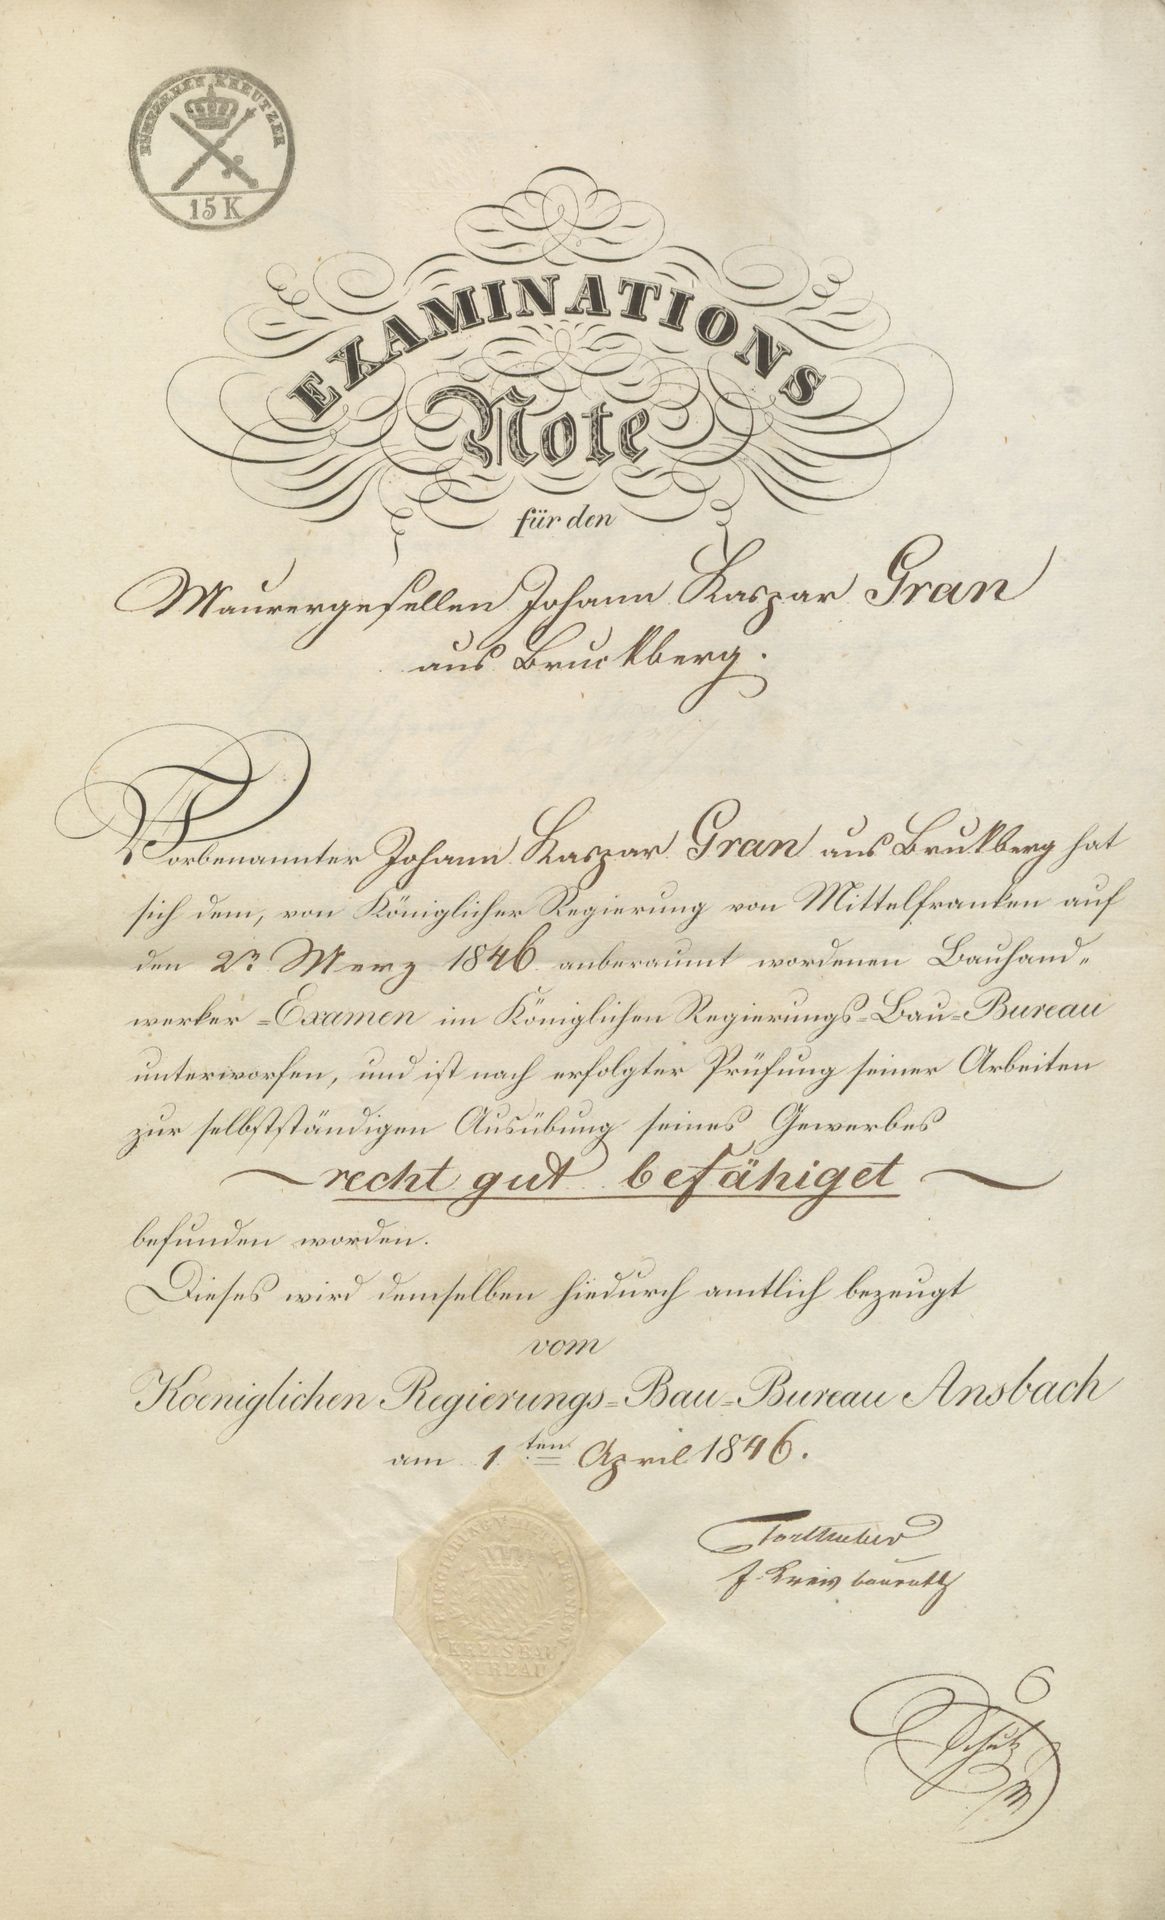 FÜNFZEHEN KREUTZER
15 K
EXAMINATIONS
Note
für den
Maurergesellen Johann Kaspar Gran
aus Bruckberg.
Vorbenannter Johann Kaspar Gran aus Brukberg hat
sich dem, von Königlicher Regierung von Mittelfranken auf
den 2n Merz 1846 anberaumt wordenen Bauhand=
werker=Examen im Königlichen Regierungs=Bau=Bureau
unterworfen, und ist nach erfolgter Prüfung seiner Arbeiten
zur selbstständigen Ausübung seines Gewerbes
recht gut befähiget
befunden worden.
Dieses wird demselben hiedurch amtlich bezeugt
vom
Koeniglichen Regierungs=Bau=Bureau Ansbach
am 1ten April 1846.
KREISBAU
BUREAU